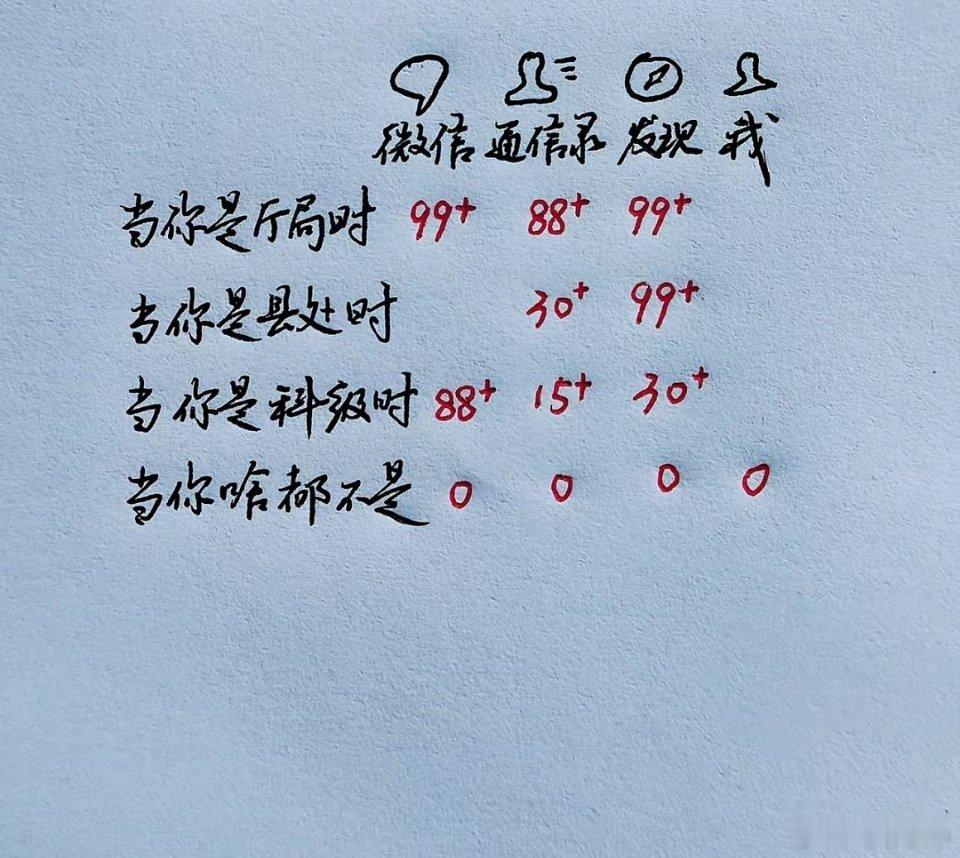 微信 通信录 发现 我
当你是厅局时 99+ 88+ 99+
当你是县处时 30+ 99+
当你是科级时 88+ 15+ 30+
当你啥都不是 0 0 0 0